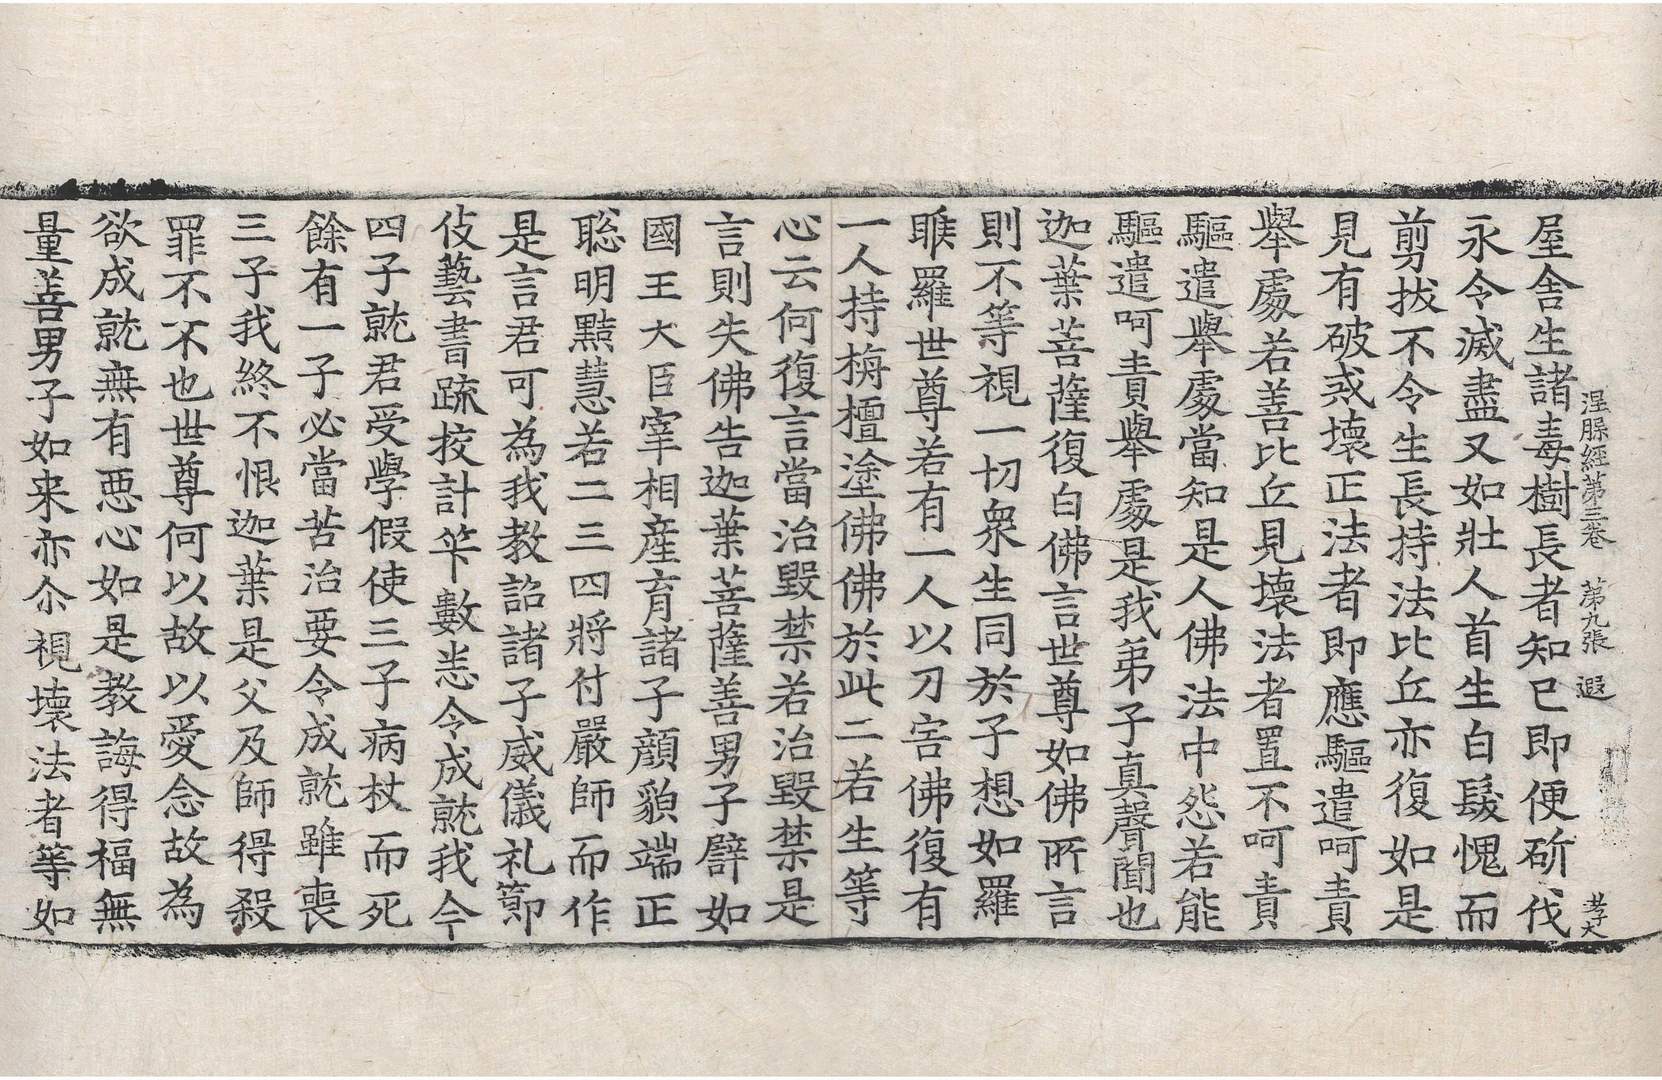 涅槃經第三卷　第九張　遐
屋舍生諸毒樹長者知已即便斫伐
永令滅盡又如壯人首生白髮愧而
剪拔不令生長持法比丘亦復如是
見有破戒壞正法者即應驅遣呵責
舉處若善比丘見壞法者置不呵責
驅遣舉處當知是人佛法中怨若能
驅遣呵責舉處是我弟子真聲聞也
迦葉菩薩復白佛言世尊如佛所言
則不等視一切衆生同於子想如羅
睺羅世尊若有一人以刀害佛復有
一人持栴檀塗佛佛於此二若生等
心云何復言當治毀禁若治毀禁是
言則失佛告迦葉菩薩善男子譬如
國王大臣宰相産育諸子顔貌端正
聡明黠慧若二三四將付嚴師而作
是言君可為我教詔諸子威儀礼節
伎藝書疏挍計笇數悉令成就我今
四子就君受學假使三子病杖而死
餘有一子必當苦治要令成就雖喪
三子我終不恨迦葉是父及師得殺
罪不不也世尊何以故以愛念故為
欲成就無有惡心如是教誨得福無
量善男子如来亦尒視壞法者等如